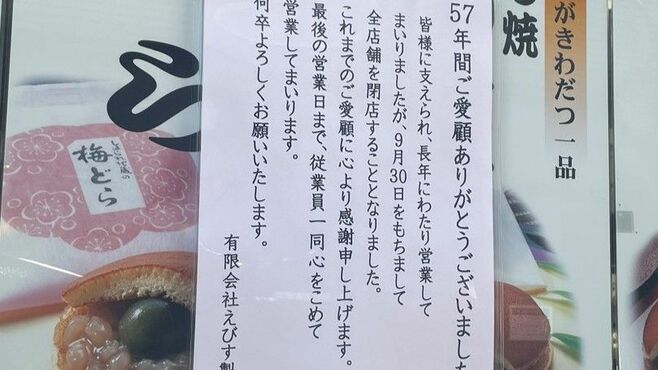 57年間ご愛顧ありがとうございました
皆様に支えられ、長年にわたり営業して
まいりましたが、9月30日をもちまして
全店舗を閉店することとなりました。
これまでのご愛顧に心より感謝申し上げます。
最後の営業日まで、従業員一同心をこめて
営業してまいります。
何卒よろしくお願いいたします。
有限会社えびす製
がきわだつ一品
焼
梅どら